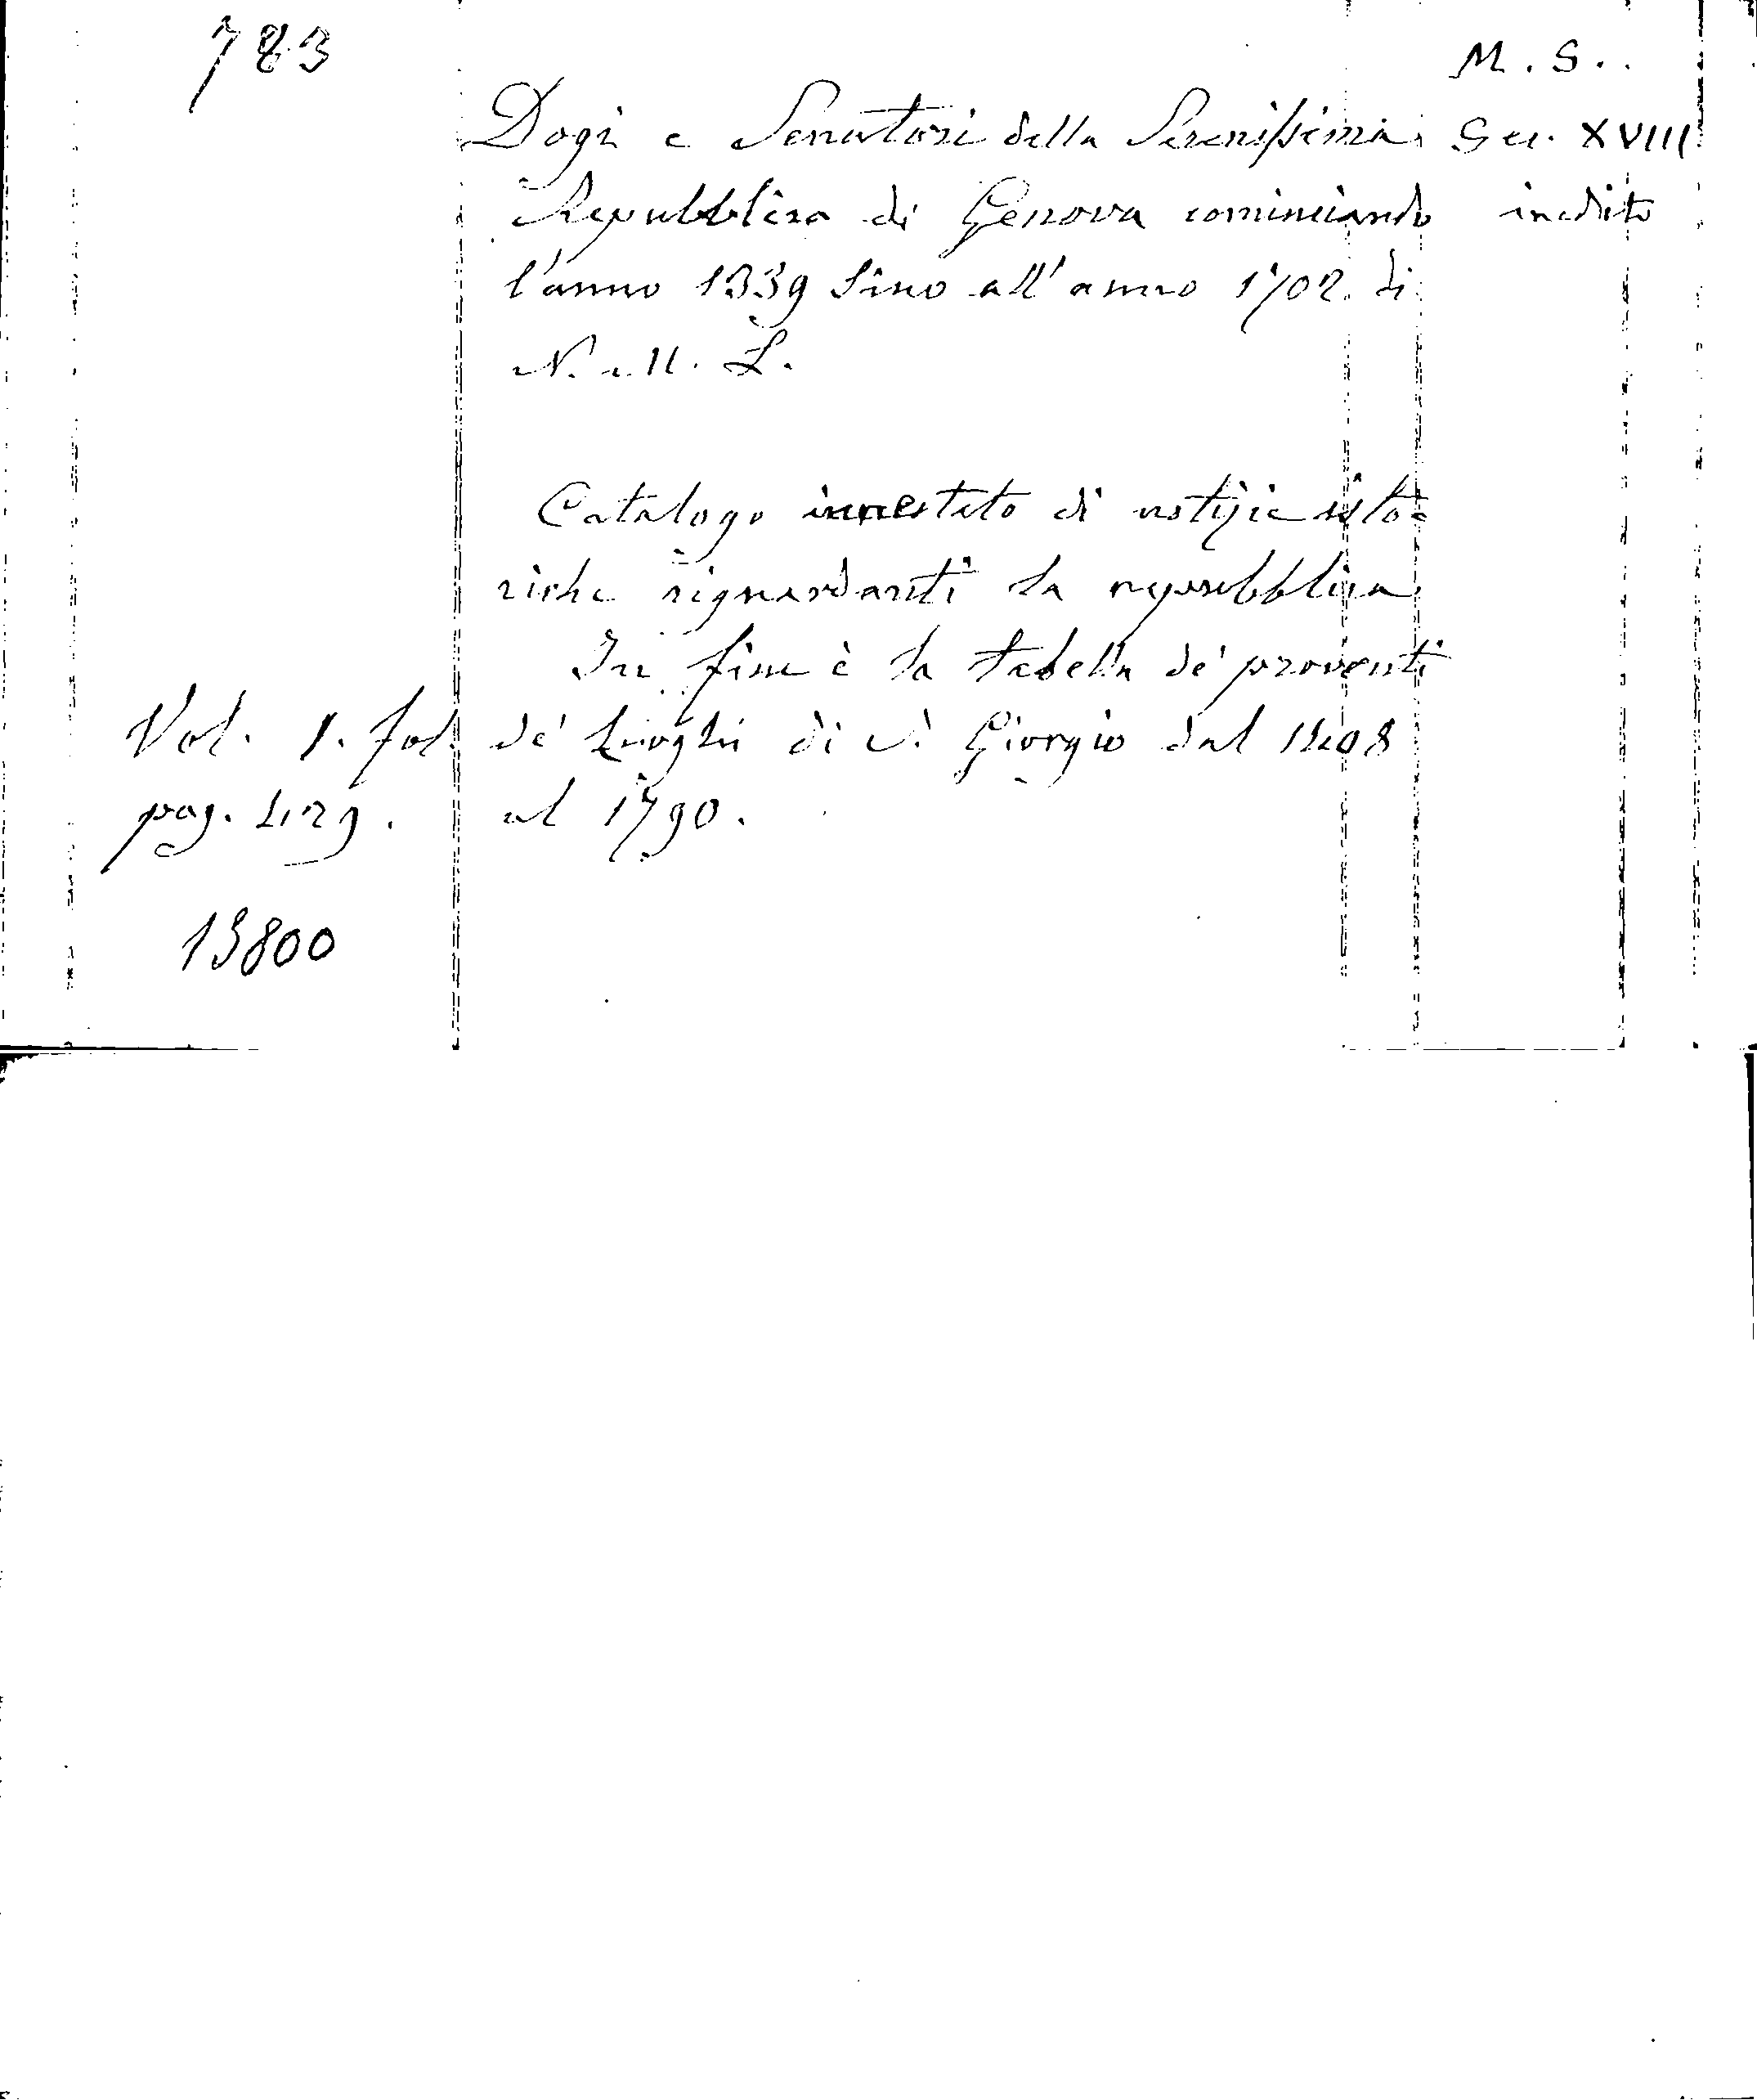 783
M. S.
Dogi e Senatori della Serenissima
Sec. XVIII
Repubblica di Genova cominciando
inedito
l'anno 1339 sino all'anno 1702 di
N. M. L.
Catalogo innestato di notizie isto=
riche riguardanti la repubblica
In fine è la tabella de' proventi
Vol. 1. fol.
de' Luoghi di S. Giorgio dal 1408
pag. 429.
al 1790.
13800